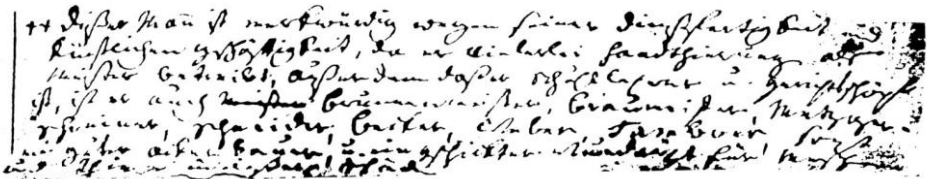 ++ dißer Mann ist merkwürdig wegen seiner dienstfertigkeit und
künstlichen geschäftigkeit, da er vielerlei handthierung als
Meister betreibt, außer dem daß er schullehrer u. gerichtschöpf
ist, ist er auch brunnenmeister, braumeister, Metzger,
schreiner, schneider, becker, weber,
ein guter ackersbauer, u. ein geschickter Wundarzt für Menschen
und